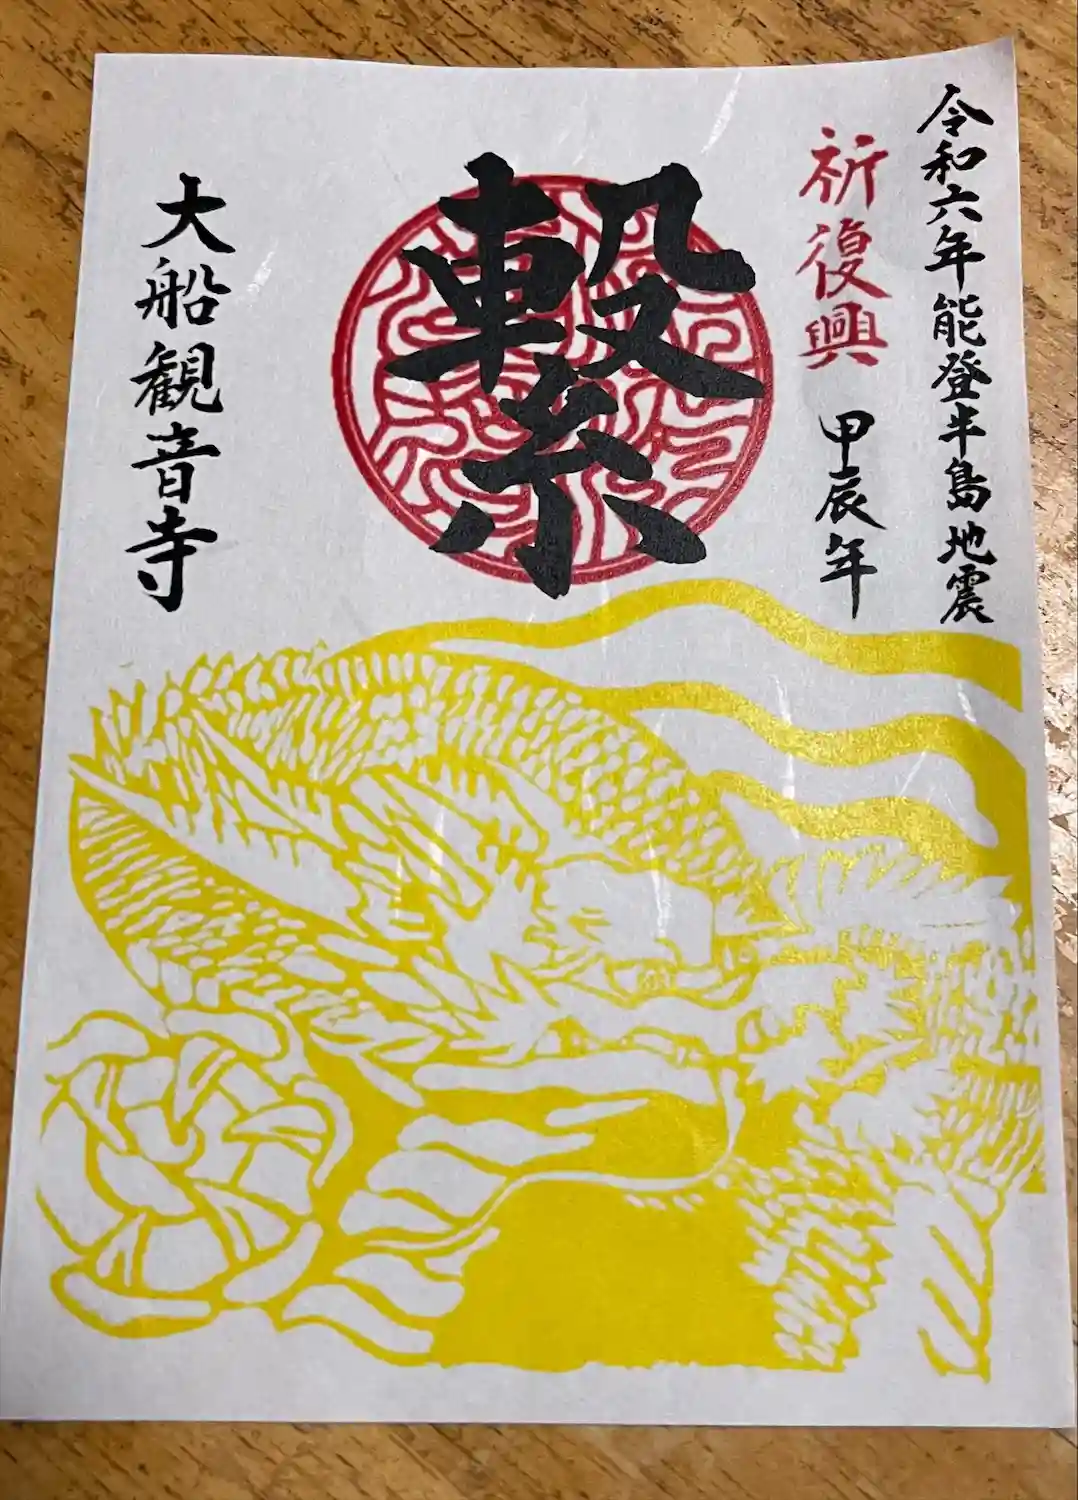 令和六年能登半島地震
祈復興 甲辰年
繋
大船観音寺